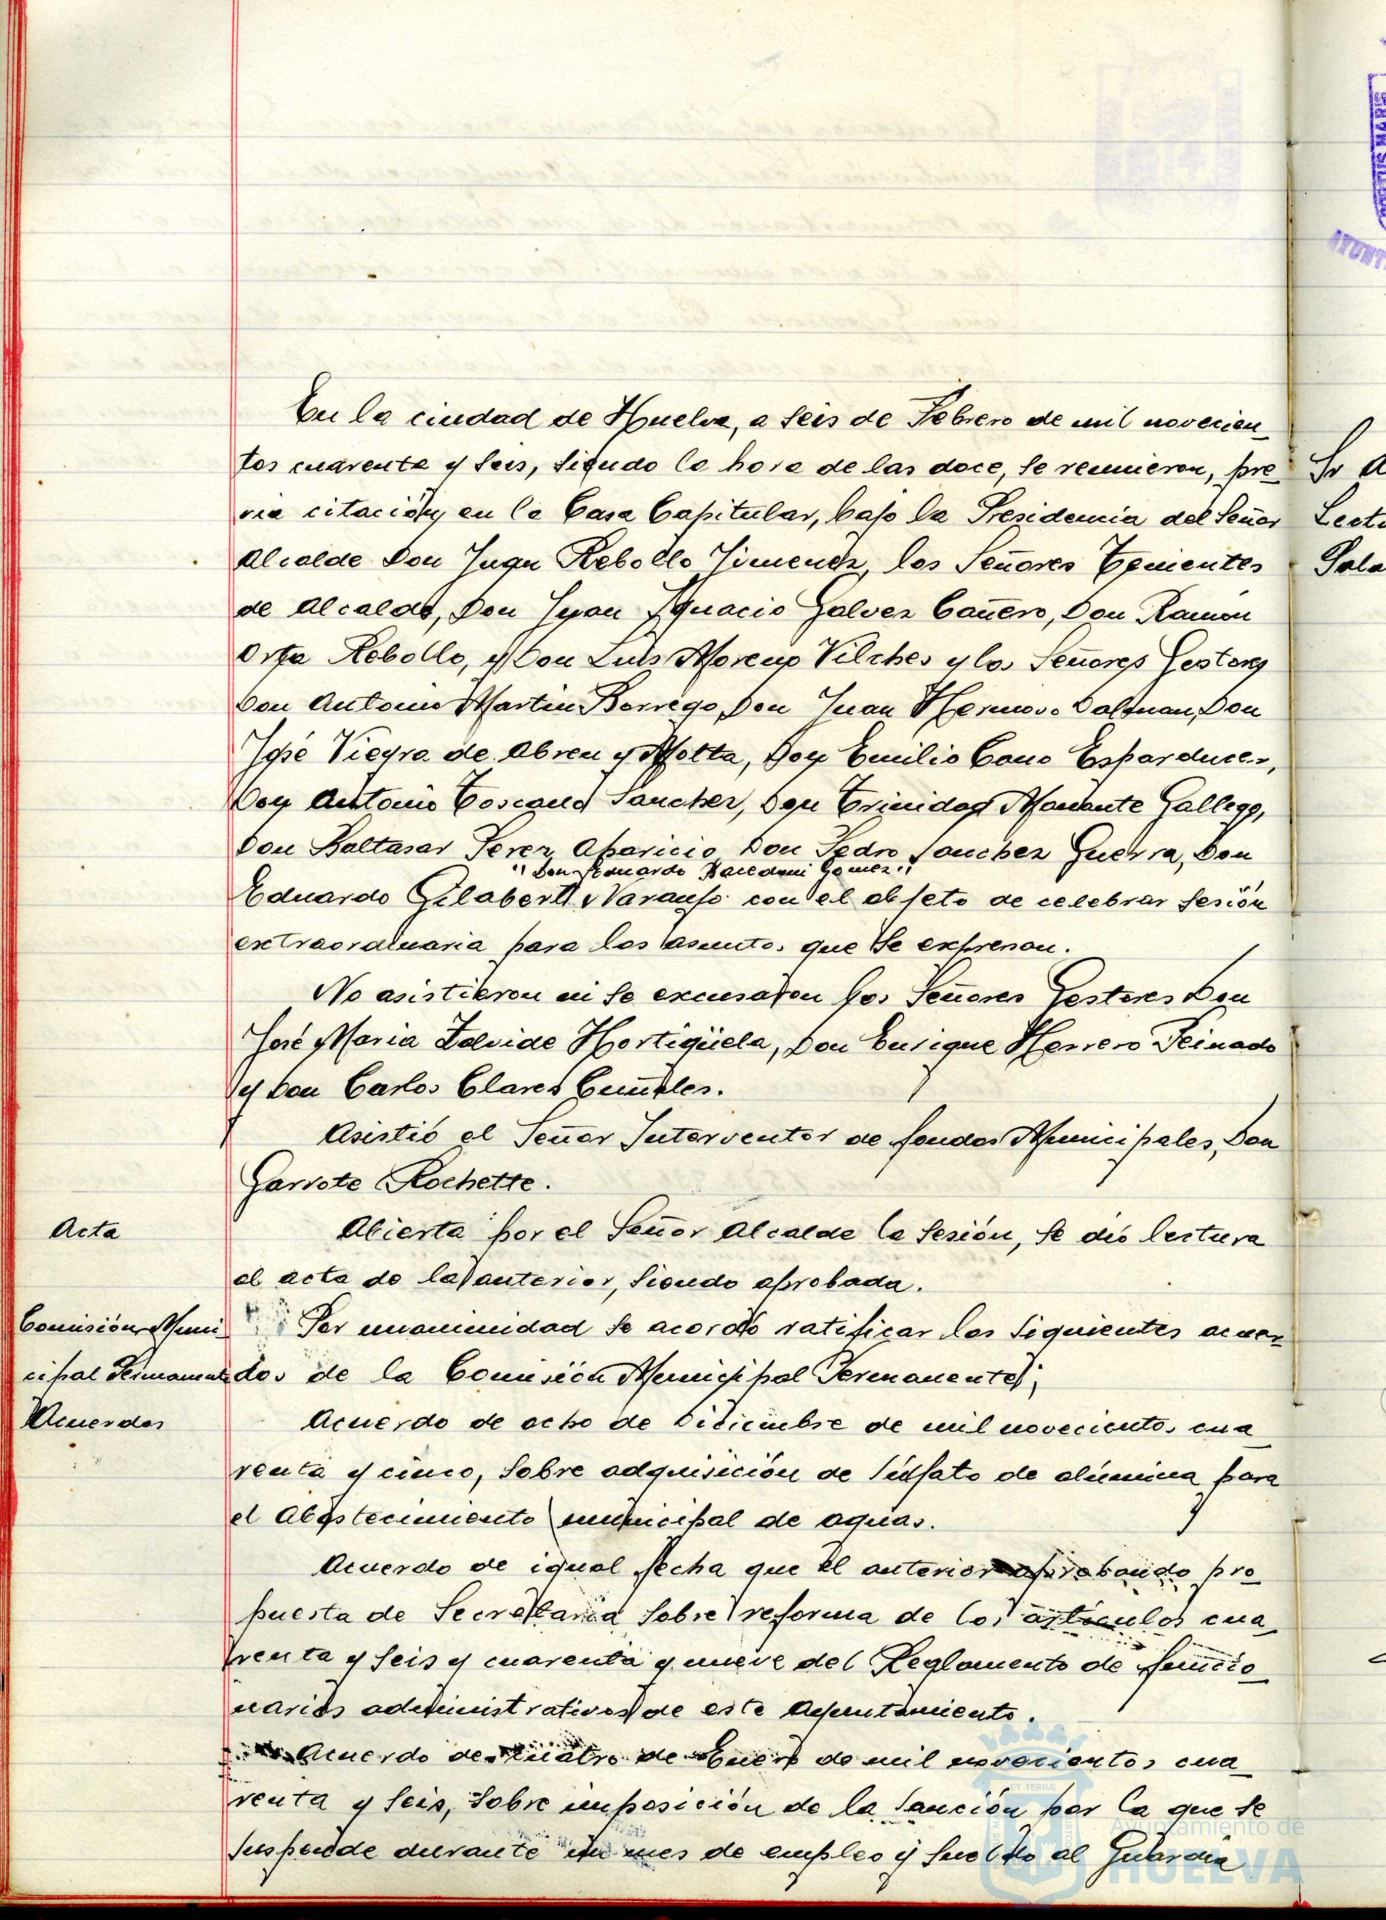 En la ciudad de Huelva, a seis de Febrero de mil novecien_
tos cuarenta y seis, siendo la hora de las doce, se reunieron, pre_
via citación, en la Casa Capitular, bajo la Presidencia del Señor
Alcalde Don Juan Rebollo Jimenez, los Señores Tenientes
de Alcalde, Don Juan Ignacio Galvez Cañero, Don Ramón
Orta Rebollo, y Don Luis Moreno Vilches y los Señores Gestores
Don Antonio Martin Borrego, Don Juan Hermoso Dalman, Don
José Vieyra de Abreu y Motta, Don Emilio Cano Esparducer,
Don Antonio Toscano Sanchez, Don Trinidad Manante Gallego,
Don Baltasar Perez Aparicio, Don Pedro Sanchez Guerra, Don
"Don Eduardo Gomez"
Eduardo Gilabert Naranjo con el objeto de celebrar sesión
extraordinaria para los asuntos que se expresan.
No asistieron ni se excusaron los Señores Gestores Don
José Maria Zalvide Hortigüela, Don Enrique Herrero Peinado
y Don Carlos Clares
Asistió el Señor Interventor de fondos Municipales, Don
Garrote Rochette.
Acta
Abierta por el Señor Alcalde la sesión, se dió lectura
al acta de la anterior, siendo aprobada.
Comisión Muni-
cipal Permanente
Acuerdos
Por unanimidad se acordó ratificar los siguientes acuer-
dos de la Comisión Municipal Permanente;
Acuerdo de ocho de Diciembre de mil novecientos cua_
renta y cinco, sobre adquisición de súlfato de alúmina para
el Abastecimiento municipal de aguas.
Acuerdo de igual fecha que el anterior aprobando pro_
puesta de Secretaria sobre reforma de los artículos cua_
renta y seis y cuarenta y nueve del Reglamento de funcio_
narios administrativos de este Ayuntamiento.
Acuerdo de cuatro de Enero de mil novecientos cua_
renta y seis, sobre imposición de la sanción por la que se
suspende durante un mes de empleo y sueldo al Guardia
Sr A
Lectu
Pala
PORTUS MARIS
AYUNT
ET TERRÆ
Ayuntamiento de
HUELVA